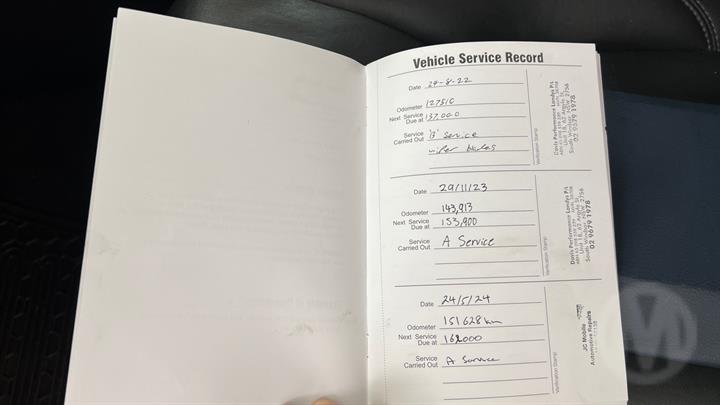 Vehicle Service Record
Date 24-8-22
Odometer 127516
Next Service Due at 137.000
Service Carried Out 'B' Service
wiper blades
Verification Stamp
Davis Performance Landys P/L
South Windsor NSW 2756
02 9679 1978
Date 29/11/23
Odometer 143,913
Next Service Due at 153,900
Service Carried Out A Service
Verification Stamp
Davis Performance Landys P/L
South Windsor NSW 2756
02 9679 1978
Date 24/5/24
Odometer 151628 km
Next Service Due at 162000
Service Carried Out A Service
Verification Stamp
JC Mobile
Automotive Repairs